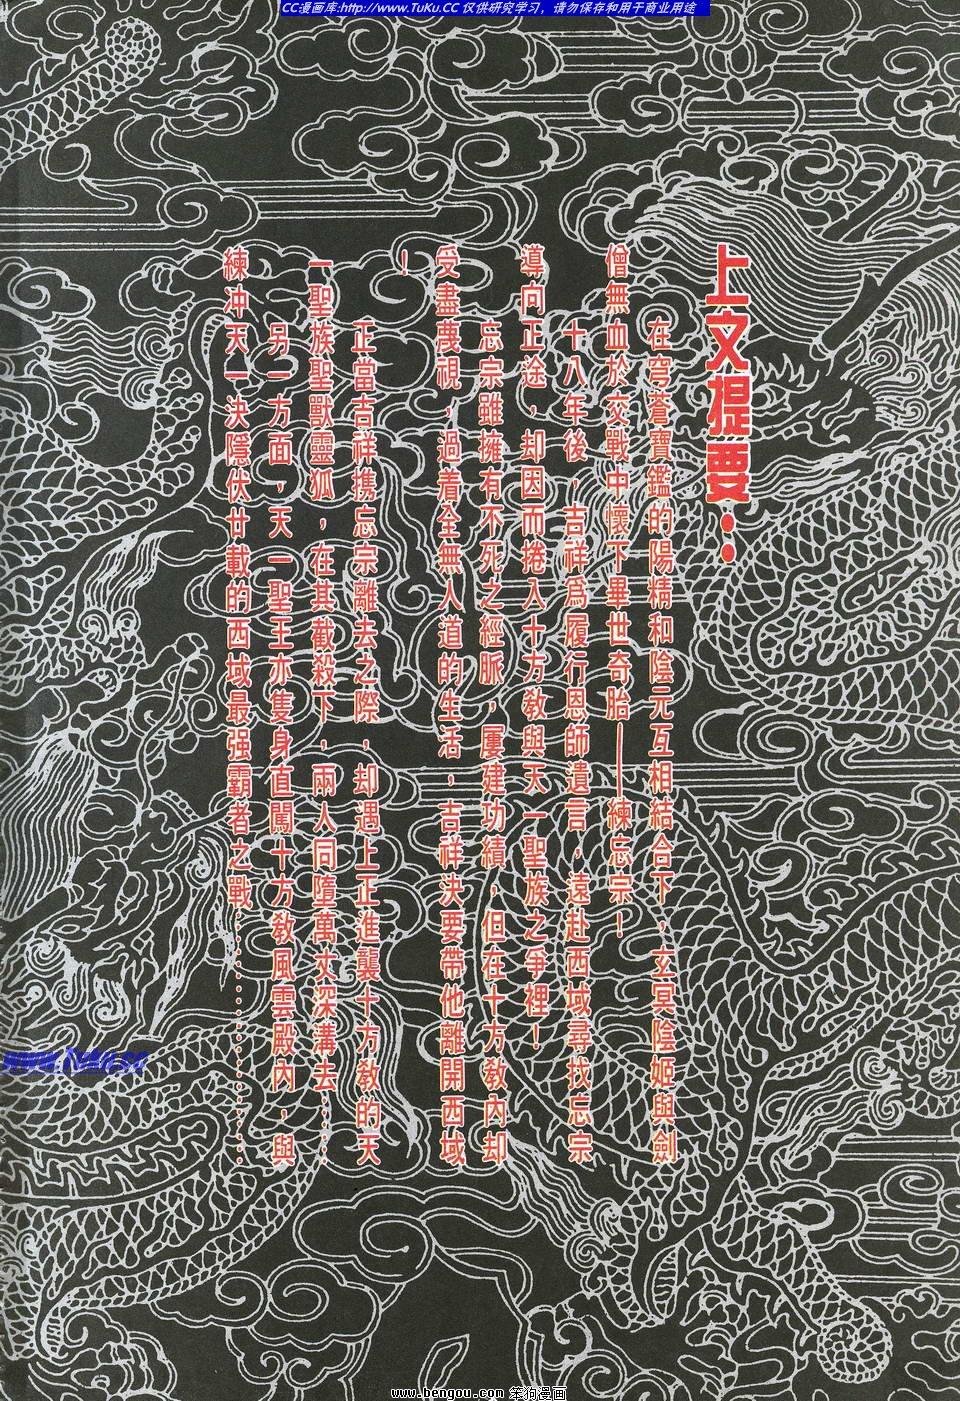 CC漫画库:http://www.TuKu.CC 仅供研究学习，请勿保存和用于商业用途
上文提要：
在穹蒼寶鑑的陽精和陰元互相結合下，玄冥陰姬與劍
僧無血於交戰中懷下畢世奇胎——練忘宗！
十八年後，吉祥爲履行恩師遺言，遠赴西域尋找忘宗
導向正途，却因而捲入十方教與天一聖族之爭裡！
忘宗雖擁有不死之經脈，屢建功績，但在十方教內却
受盡蔑視，過着全無人道的生活，吉祥決要帶他離開西域
！
正當吉祥携忘宗離去之際，却遇上正進襲十方教的天
一聖族聖獸靈狐，在其截殺下，兩人同墮萬丈深溝去……
另一方面，天一聖王亦隻身直闖十方教風雲殿內，與
練冲天一決隱伏廿載的西域最强霸者之戰………………
www.Tuku.cc
www.bengou.com 笨狗漫画